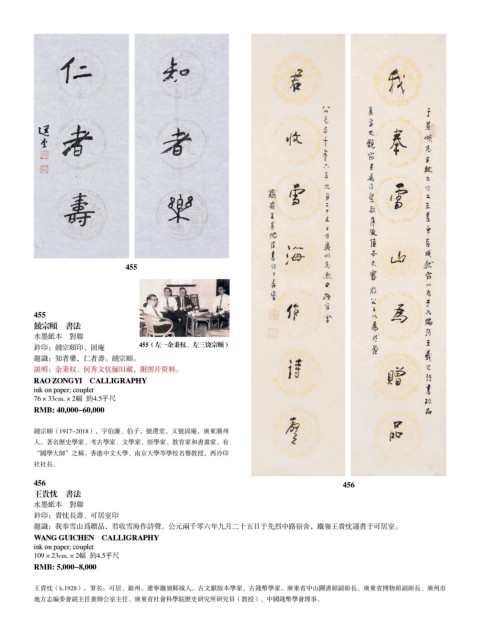 知者樂
仁者壽
選堂
我奉雪山爲贈品
君收雪海作詩聲
455
455（左一余秉权、左三饶宗頤）
455
饒宗頤　書法
水墨紙本　對聯
鈐印：饒宗頤印、固庵
題識：知者樂，仁者壽。饒宗頤。
説明：余秉权、何秀文伉俪旧藏，附图片资料。
RAO ZONGYI　CALLIGRAPHY
ink on paper; couplet
76×33cm.×2幅　約4.5平尺
RMB: 40,000–60,000
饒宗頤（1917–2018），字伯濂、伯子，號選堂，又號固庵，廣東潮州
人。著名歷史學家、考古學家、文學家、經學家、教育家和書畫家，有
“國學大師”之稱。香港中文大學、南京大學等學校名譽教授，西泠印
社社長。
456
456
王貴忱　書法
水墨紙本　對聯
鈐印：貴忱長壽、可居室印
題識：我奉雪山爲贈品，君收雪海作詩聲。公元兩千零六年九月二十五日于先烈中路宿舍，鐵嶺王貴忱謹書于可居室。
WANG GUICHEN　CALLIGRAPHY
ink on paper; couplet
109×23cm.×2幅　約4.5平尺
RMB: 5,000–8,000
王貴忱（b.1928），筆名：可居。錦州。遼寧鐵嶺縣城人。古文獻版本學家、古錢幣學家。廣東省中山圖書館副館長、廣東省博物館副館長、廣州市
地方志編委會副主任兼辦公室主任、廣東省社會科學院歷史研究所研究員（教授）、中國錢幣學會理事。